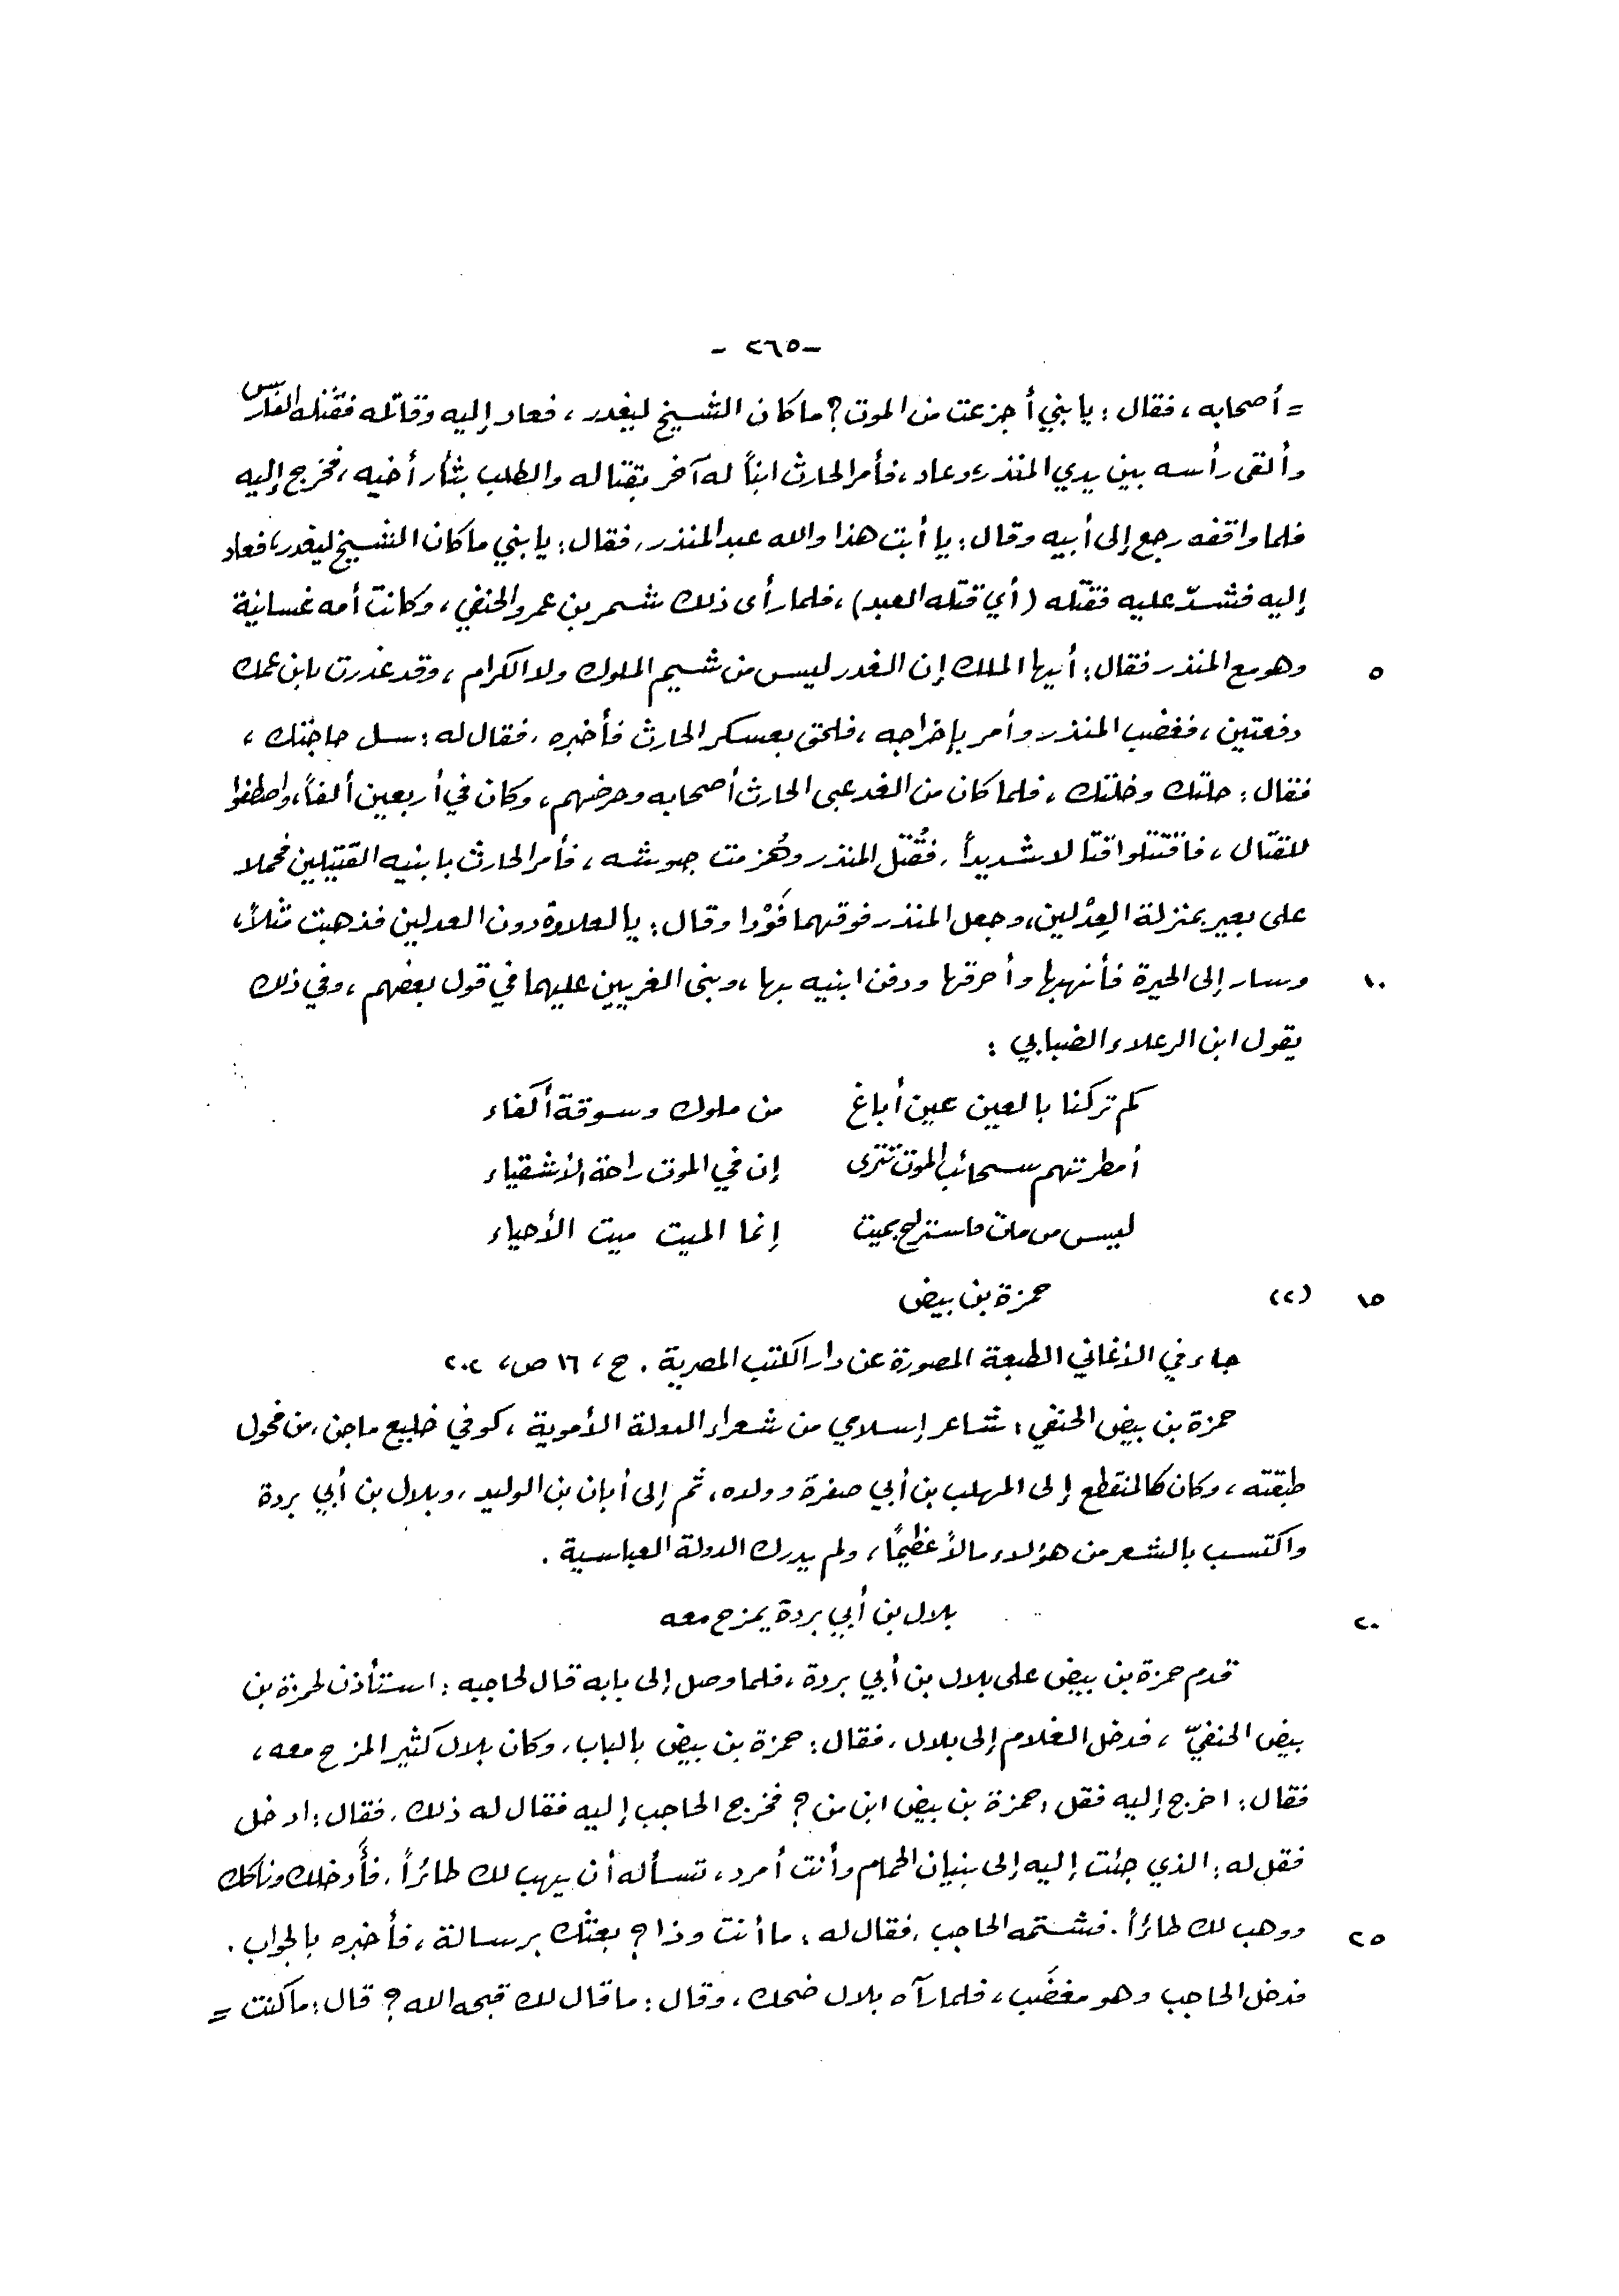 -٢٦٥-
= أصحابه ، فقال : يا بني أجزعت من الموت ؟ ما كان الشيخ ليغدر ، فعاد إليه وقاتله فقتله الفارس
وألقى رأسه بين يدي المنذر ، وعاد ، فأمر الحارث ابناً له آخر بقتاله والطلب بثأر أخيه ، فخرج إليه
فلما واقفه رجع إلى أبيه وقال : يا أبت هذا والله عبد المنذر ، فقال : يا بني ما كان الشيخ ليغدر ، فعاد
إليه فشدّ عليه فقتله ( أي قتله العبد ) ، فلما رأى ذلك شمر بن عمرو الحنفي ، وكانت أمه غسانية
٥ وهو مع المنذر فقال : أيها الملك إن الغدر ليس من شيم الملوك ولا الكرام ، وقد غدرت بابن عمك
دفعتين ، فغضب المنذر وأمر بإخراجه ، فلحق بعسكر الحارث فأخبره ، فقال له : سل حاجتك ،
فقال : حلّتك وخلّتك ، فلما كان من الغد عبى الحارث أصحابه وحرضهم ، وكان في أربعين ألفاً ، واصطفوا
للقتال ، فاقتتلوا قتالا شديداً ، فقُتل المنذر وهُزمت جيوشه ، فأمر الحارث بابنيه القتيلين فحملا
على بعير بمنزلة العِدْلين ، وجعل المنذر فوقهما فَوْدا وقال : يا لعلاوة دون العدلين فذهبت مثلاً ،
١٠ وسار إلى الحيرة فأنهبها وأحرقها ودفن ابنيه بها ، وبنى الغريين عليهما في قول بعضهم ، وفي ذلك
يقول ابن الرعلاء الضبابي :
كم تركنا بالعين عين أباغ من ملوك وسوقة أكفاء
أمطرتهم سحائب الموت تترى إن في الموت راحة الأشقياء
ليس من مات فاستراح بميت إنما الميت ميت الأحياء
١٥ (٢) حمزة بن بيض
جاء في الأغاني الطبعة المصورة عن دار الكتب المصرية . ج ، ١٦ ص ، ٢٠٢
حمزة بن بيض الحنفي : شاعر إسلامي من شعراء الدولة الأموية ، كوفي خليع ماجن ، من فحول
طبقته ، وكان كالمنقطع إلى المهلب بن أبي صفرة وولده ، ثم إلى أبان بن الوليد ، وبلال بن أبي بردة
واكتسب بالشعر من هؤلاء مالاً عظيمًا ، ولم يدرك الدولة العباسية .
٢٠ بلال بن أبي بردة يمزح معه
قدم حمزة بن بيض على بلال بن أبي بردة ، فلما وصل إلى بابه قال لحاجبه : استأذن لحمزة بن
بيض الحنفيّ ، فدخل الغلام إلى بلال ، فقال : حمزة بن بيض بالباب ، وكان بلال كثير المزح معه ،
فقال : اخرج إليه فقل : حمزة بن بيض ابن من ؟ فخرج الحاجب إليه فقال له ذلك ، فقال : ادخل
فقل له : الذي جئت إليه إلى بنيان الحمام وأنت أمرد ، تسأله أن يهب لك طائراً ، فأدخلك وناكك
٢٥ ووهب لك طائراً . فشتمه الحاجب ، فقال له : ما أنت وذا ؟ بعثك برسالة ، فأخبره بالجواب .
فدخل الحاجب وهو مغضَب ، فلما رآه بلال ضحك ، وقال : ما قال لك قبحه الله ؟ قال : ما كنت =